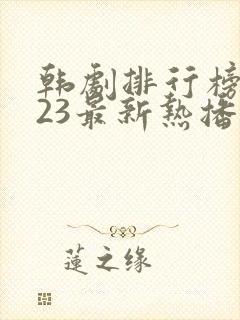 韩剧排行榜
23最新热播
莲之缘